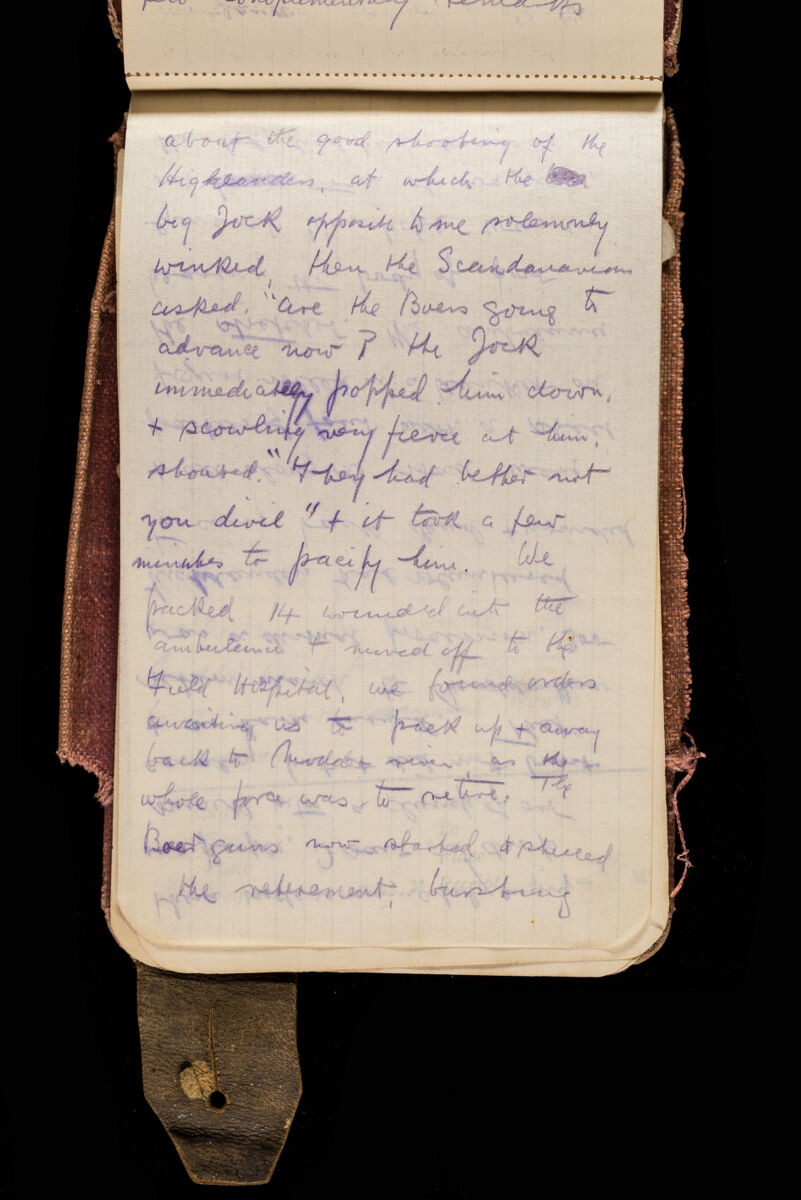 few complementary remarks
about the good shooting of the
Highlanders, at which the
big Jock opposite to me solemnly
winked, then the Scandanavian
asked. "are the Boers going to
advance now? the Jock
immediately popped him down,
+ scowling very fierce at him,
shouted." "They had better not
you divil" + it took a few
minutes to pacify him. We
packed 14 wounded into the
ambulance + moved off to the
Field Hospital, we found orders
awaiting us to pack up + away
back to Modder river as the
whole force was to retire. The
Boer guns now started + shelled
the retirement, bursting